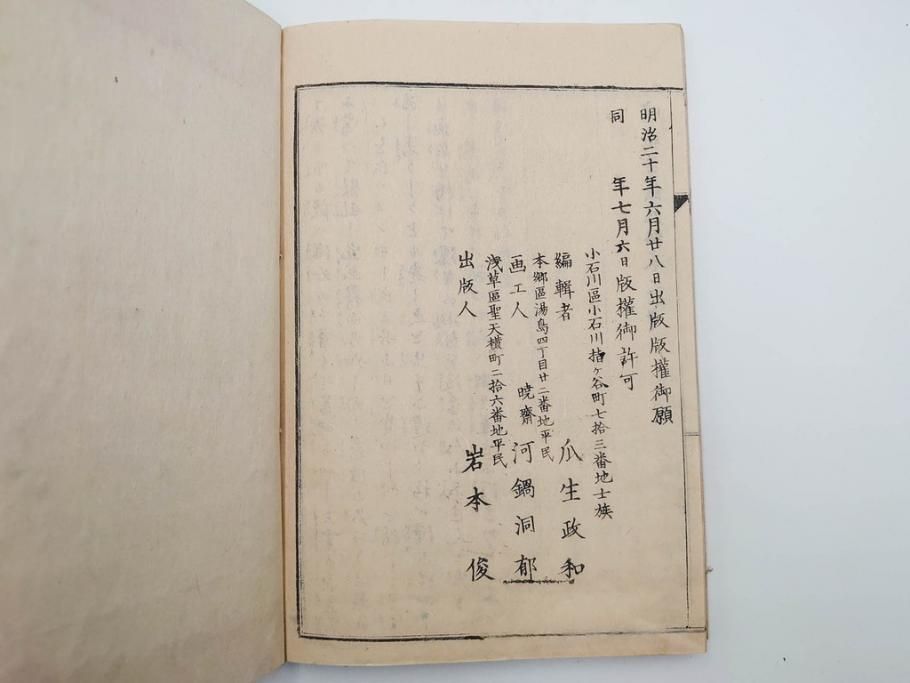 明治二十年六月廿八日出版版權御願
同　　年七月六日版權御許可
小石川區小石川指ヶ谷町七拾三番地士族
編輯者　瓜生政和
本郷區湯島四丁目廿二番地平民
画工人　暁齋　河鍋洞郁
浅草區聖天横町二拾六番地平民
出版人　岩本　俊